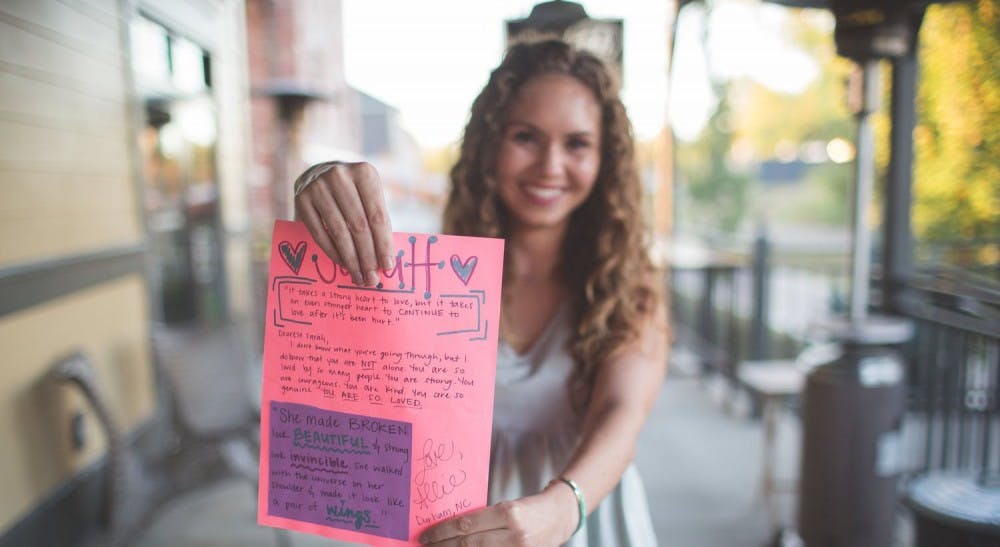 "it takes a strong heart to love, but it takes
an even stronger heart to CONTINUE to
love after it's been hurt."
Dearest Sarah,
I don't know what you're going through, but I
do know that you are NOT alone. You are so
loved by so many people. You are strong. You
are courageous. You are kind. You are so
genuine. YOU ARE SO LOVED.
"She made BROKEN
look BEAUTIFUL & strong
look invincible. She walked
with the universe on her
shoulder & made it look like
a pair of wings."
Love,
Allie
Durham, NC